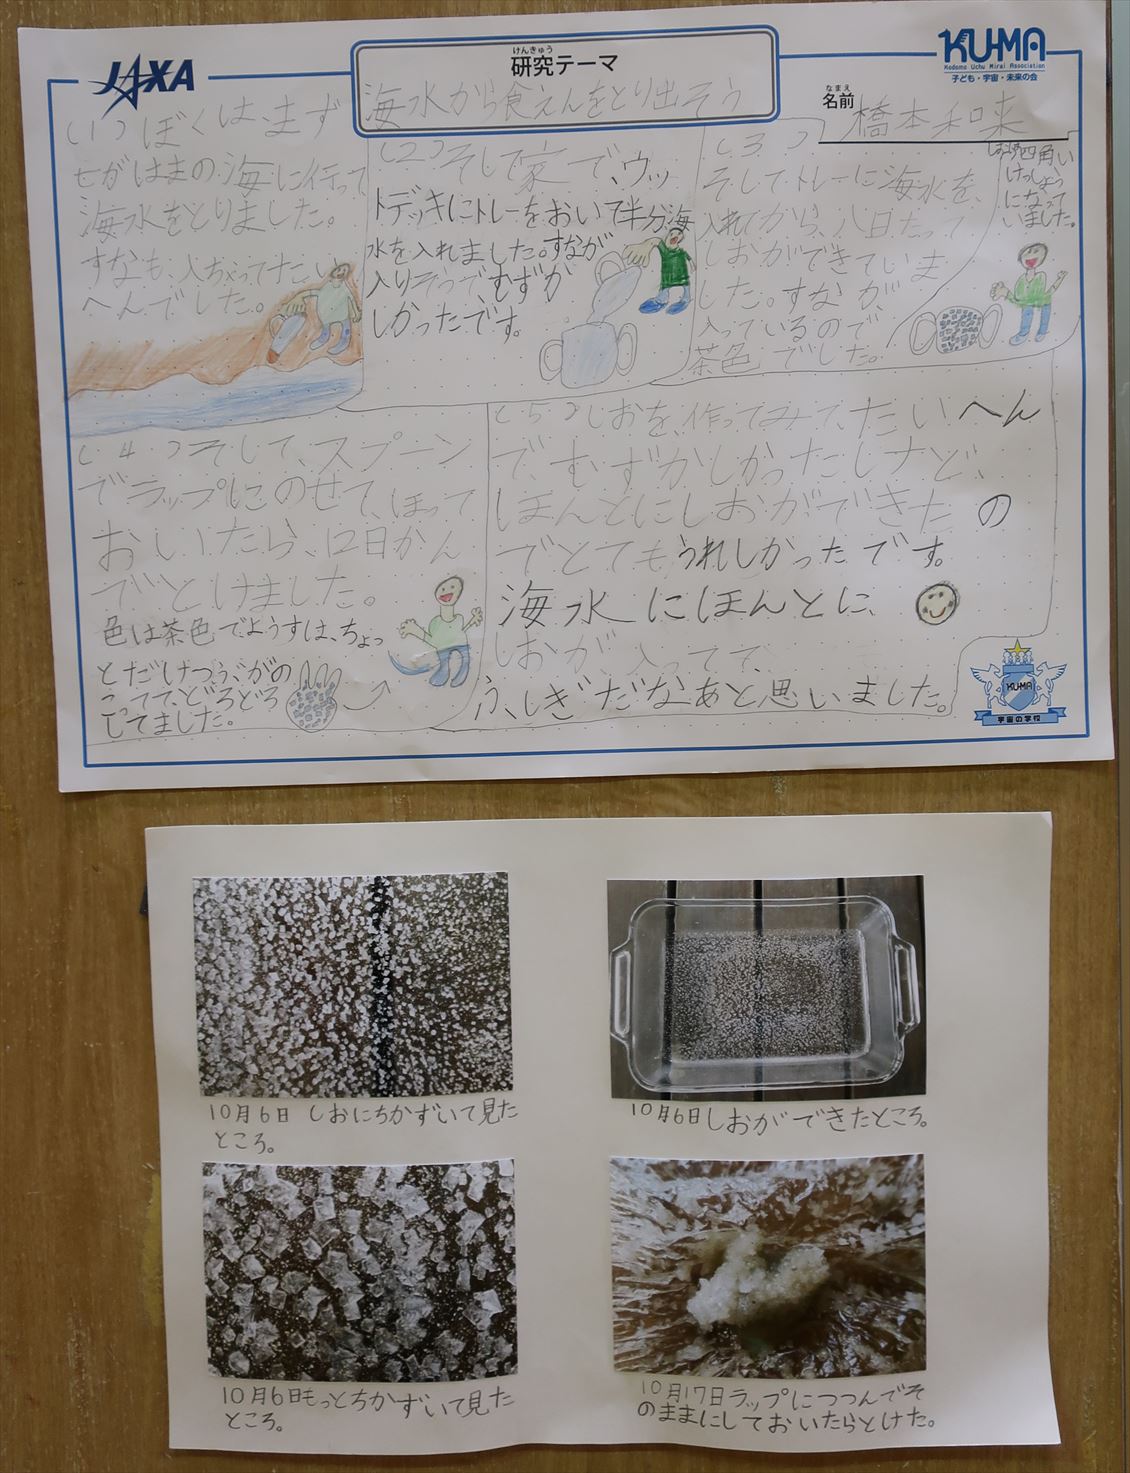 JAXA
けんきゅう
研究テーマ
海水から食えんをとり出そう
KU-MA
Kodomo Uchu Mirai Association
子ども・宇宙・未来の会
なまえ
名前
橋本和来
(1)ぼくは、まず
せがはまの海に行って
海水をとりました。
すなも、入ちゃってたい
へんでした。
(2)そして家で、ウッ
トデッキにトレーをおいて半分海
水を入れました。すなが
入りそうでむずか
しかったです。
(3)
そしてトレーに海水を、
入れてから、八日たって
しおができていま
した。すなが
入っているので
茶色でした。
しおは四角い
けっしょう
になって
いました。
(4)そして、スプーン
でラップにのせて、ほって
おいたら、12日かん
でとけました。
色は茶色でようすは、ちょっ
とだけつぶがの
こってて、どろどろ
してました。
(5)しおを、作ってみてたいへん
で、むずかしかったけど、
ほんとにしおができたの
でとてもうれしかったです。
海水にほんとに
しおが、入ってて、
ふしぎだなあと思いました。
KU-MA
宇宙の学校
10月6日 しおにちかずいて見た
ところ。
10月6日しおができたところ。
10月6日もっとちかずいて見た
ところ。
10月17日ラップにつつんでそ
のままにしておいたらとけた。